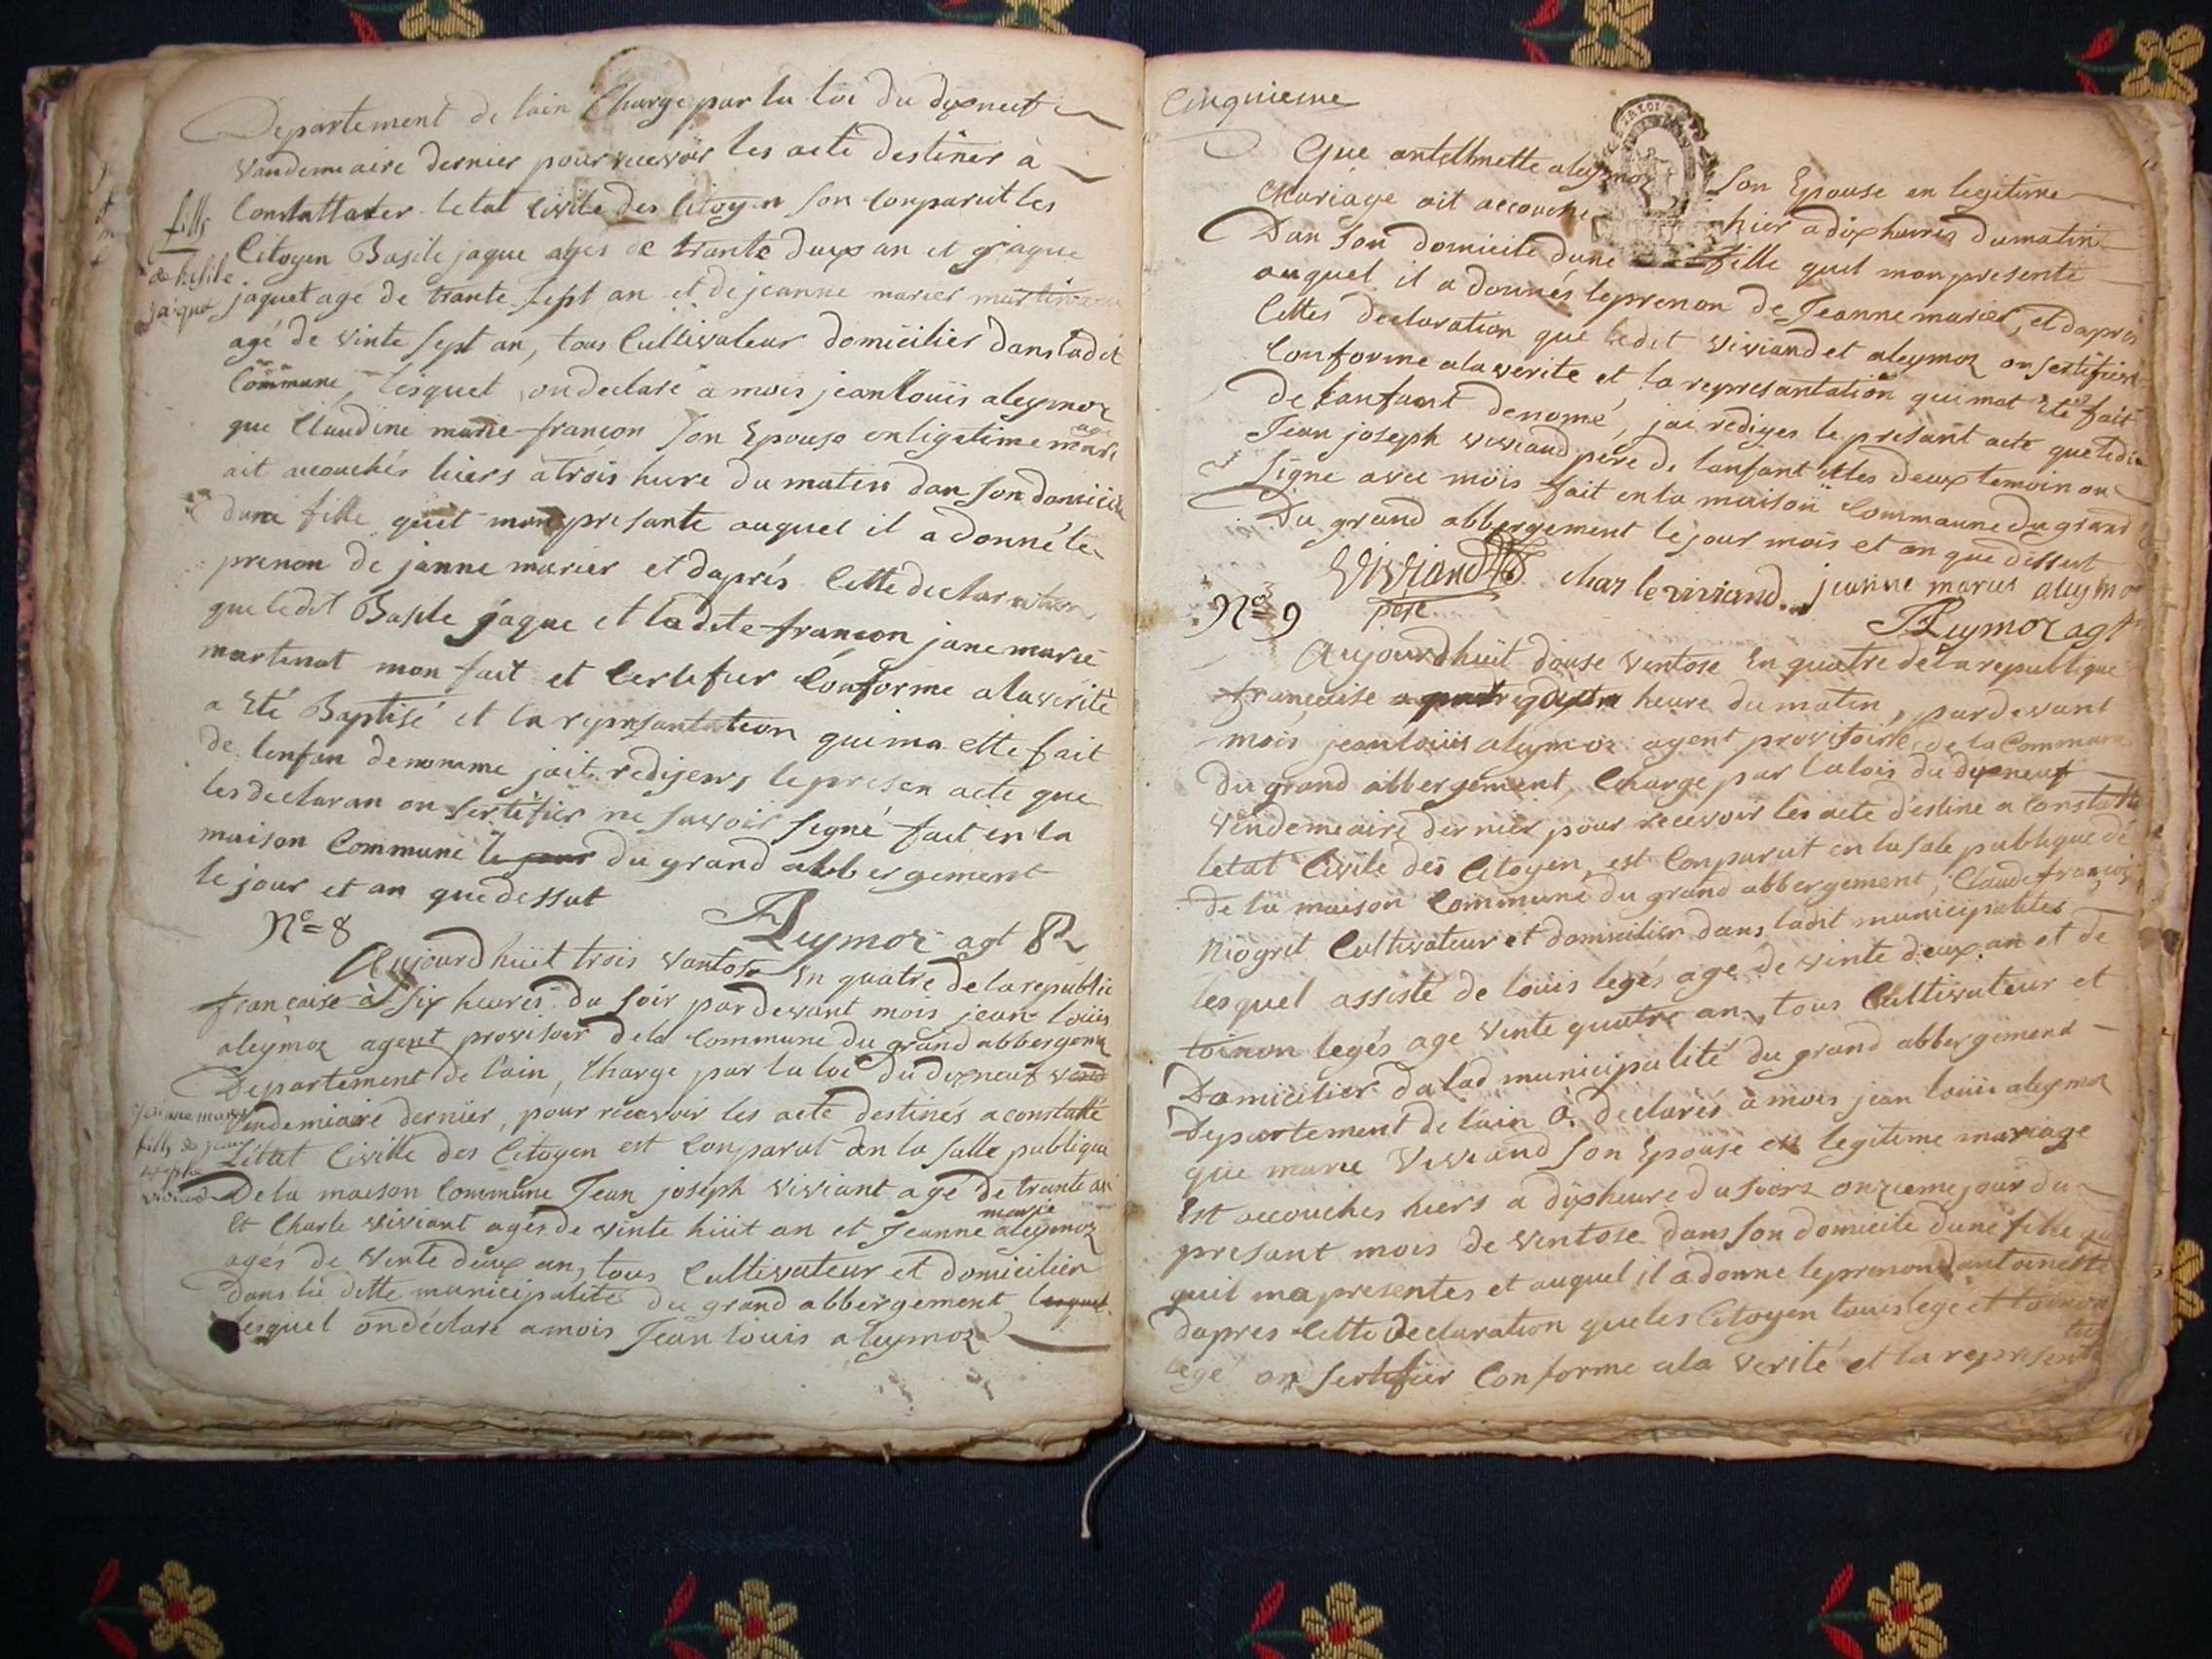 Departement de lain Charge par la loi du dixneuf
Vandemiaire dernier pour recevoir les acte destiner à
Constattater letat Civile des Citoyen son Conparut les
fille
Citoyen Basile jaque agés de trante deux an et jaque
de basile
jaque
jaquet agé de trante sept an et de jeanne marier
agé de vinte sept an, tous Cultivateur domicilier dans ladit
Commune, lesquel on declaré a mois jean Louïs aleymoz
que Claudine marie francon son Epouse en ligetime mariage
ait accouchés hiers à trois hure du matin dan son domicile
dune fille quil man presante auquel il a donné le
prenon de janne marier et daprés Cette declaration
que ledit Basile jaque et ladite francon jane marie
martinat mon fait et Certefier Conforme a la verite
a Eté Baptisé et la represantation qui ma ette fait
de lenfan denomme jait redijers le presen acte que
les declaran on sertefier ne savoir signé fait en la
maison Commune le jour du grand abbergement
le jour et an que dessut
Aleymoz agt
N° 8
Aujourdhüit trois vantose En quatre de la republic
francaise à six heures du soir pardevant mois jean louïs
aleymoz agent provisoir de la Commune du grand abbergem
Departement de lain, Charge par la loi du dixneuf
jeanne marie
Vendemiaire dernier, pour recevoir les acte destinés a constatté
fille de jean
Létat Civille des Citoyen est Conparut dn la salle publique
joseph
viviand
De la maison Commune Jean joseph viviant agé de trante an
Et Charle viviant agés de vinte hüit an et Jeanne marie aleymoz
agés de vinte deux an, tous Cultivateur et domicilier
dans la ditte municipalité du grand abbergement, lesquel
lesquel on déclaré a mois Jean louis aleymoz
Cinquieme
Que antelhmette aleymoz son Epouse en legitime
Mariage ait accouche hier a dix heures du matin
Dan son domicile dune fille quil man presente
auquel il a donnés le prenon de Jeanne marier, et daprés
Cettes declaration que ledit viviand et aleymoz on sertifier
Conforme a la verite et la represantation qui mat Eté fait
de lanfant denomé, jai rediges le presant acte que ledi
Jean joseph viviand pere de lanfant et les deux temoin on
Signe avec mois fait en la maison Commaune du grand
Du grand abbergement le jour mois et an que dessut
Viviand père charle viviand jeanne marie aleymoz
Aleymoz agt
N° 9
Aujourdhüit douse ventose En quatre de la republique
française heure du matin, pardevant
mois jean louïs aleymoz agent provisoire de la Commune
du grand abbergement, Charge par la lois du dixneuf
vendemiaire dernier pour recevoir les acte destine a constatte
letat Civile des Citoyen, est Conparut en la sale publique de
de la maison Commune du grand abbergement, Claude françois
Niogret Cultivateur et domicilier dans ladit municipalites
lesquel assisté de louïs legés age de vinte deux an et de
toinon legés age vinte quatre an, tous Cultivateur et
Domicilier da lad municipalité du grand abbergement
Departement de lain à declarés à mois jean louïs aleymoz
que marie viviand son Epouse en legitime mariage
Est accouches hiers a dix heure du soirs onzieme jour du
presant mois de ventose dans son domicile dune fille
quil ma presentes et auquel il a donne le prenon dantoinette
dapres Cette declaration que les Citoyen louis legé et toinon
legé on sertifier Conforme a la verité et la representa